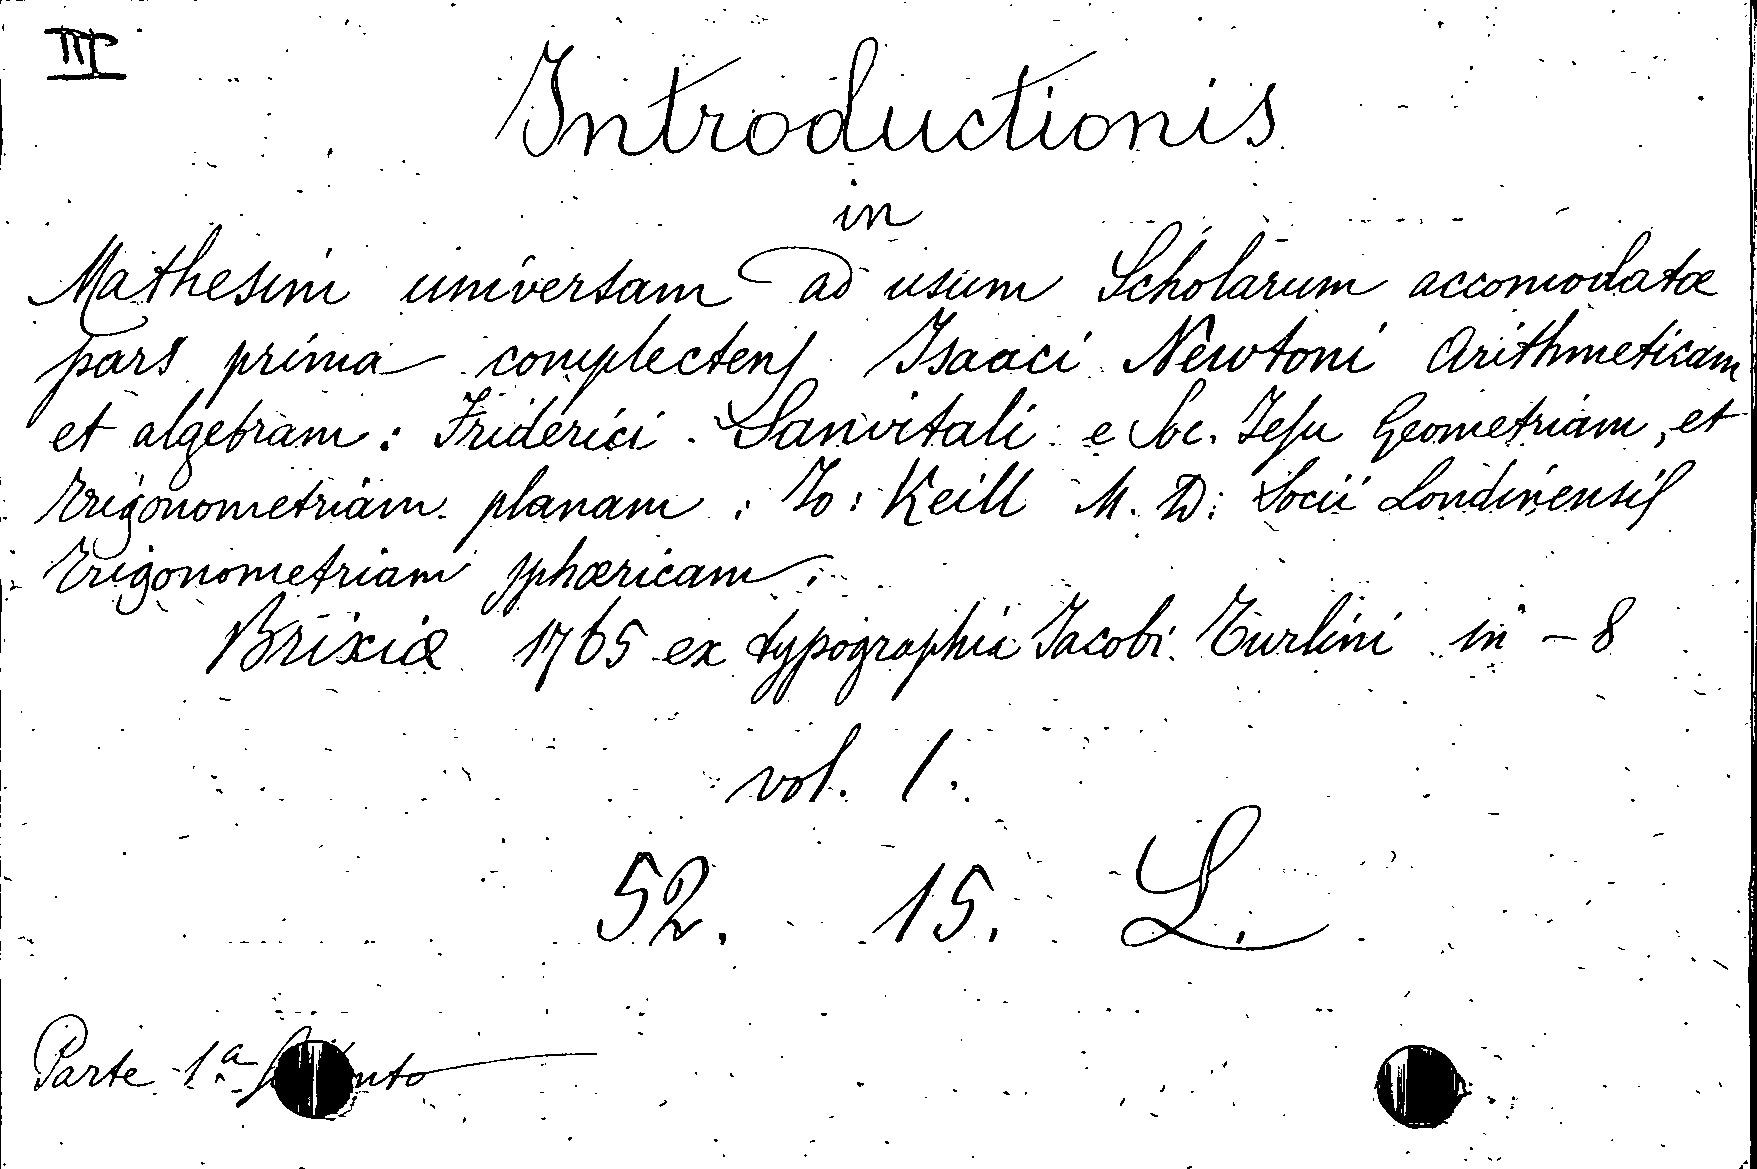 III
Introductionis
in
Mathesim universam ad usum Scholarum accomodatæ
pars prima complectens Isaaci Newtoni Arithmeticam
et algebram: Friderici Sanvitali e Soc. Jesu Geometriam, et
trigonometriam planam: Jo: Keill M. D: Socii Londinensis
trigonometriam sphæricam.
Brixiæ 1765 ex typographia Jacobi Turlini in - 8
vol. 1.
52. 15. L.
Parte 1.a